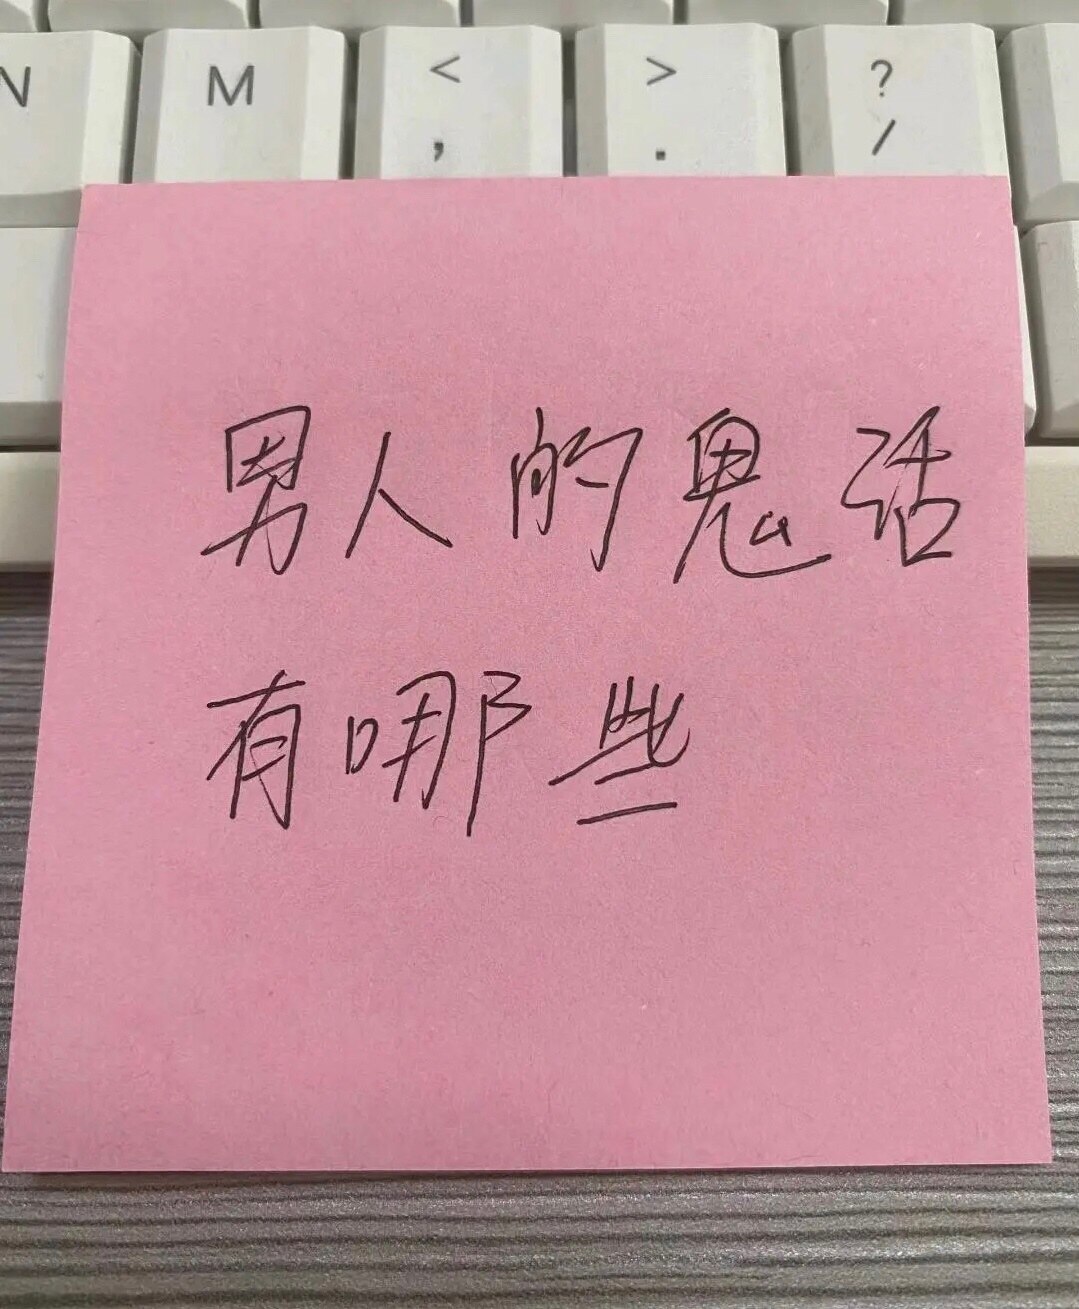 N M < > ?
, . /
男人的鬼话
有哪些